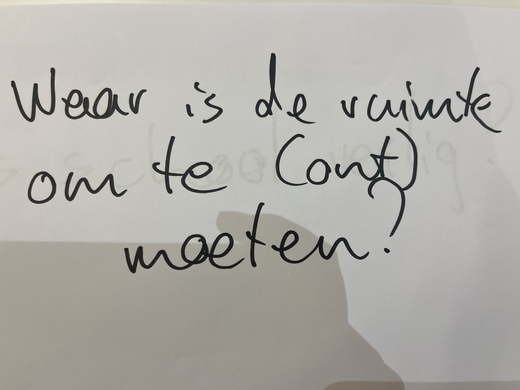 Waar is de ruimte
om te (ont)
moeten?